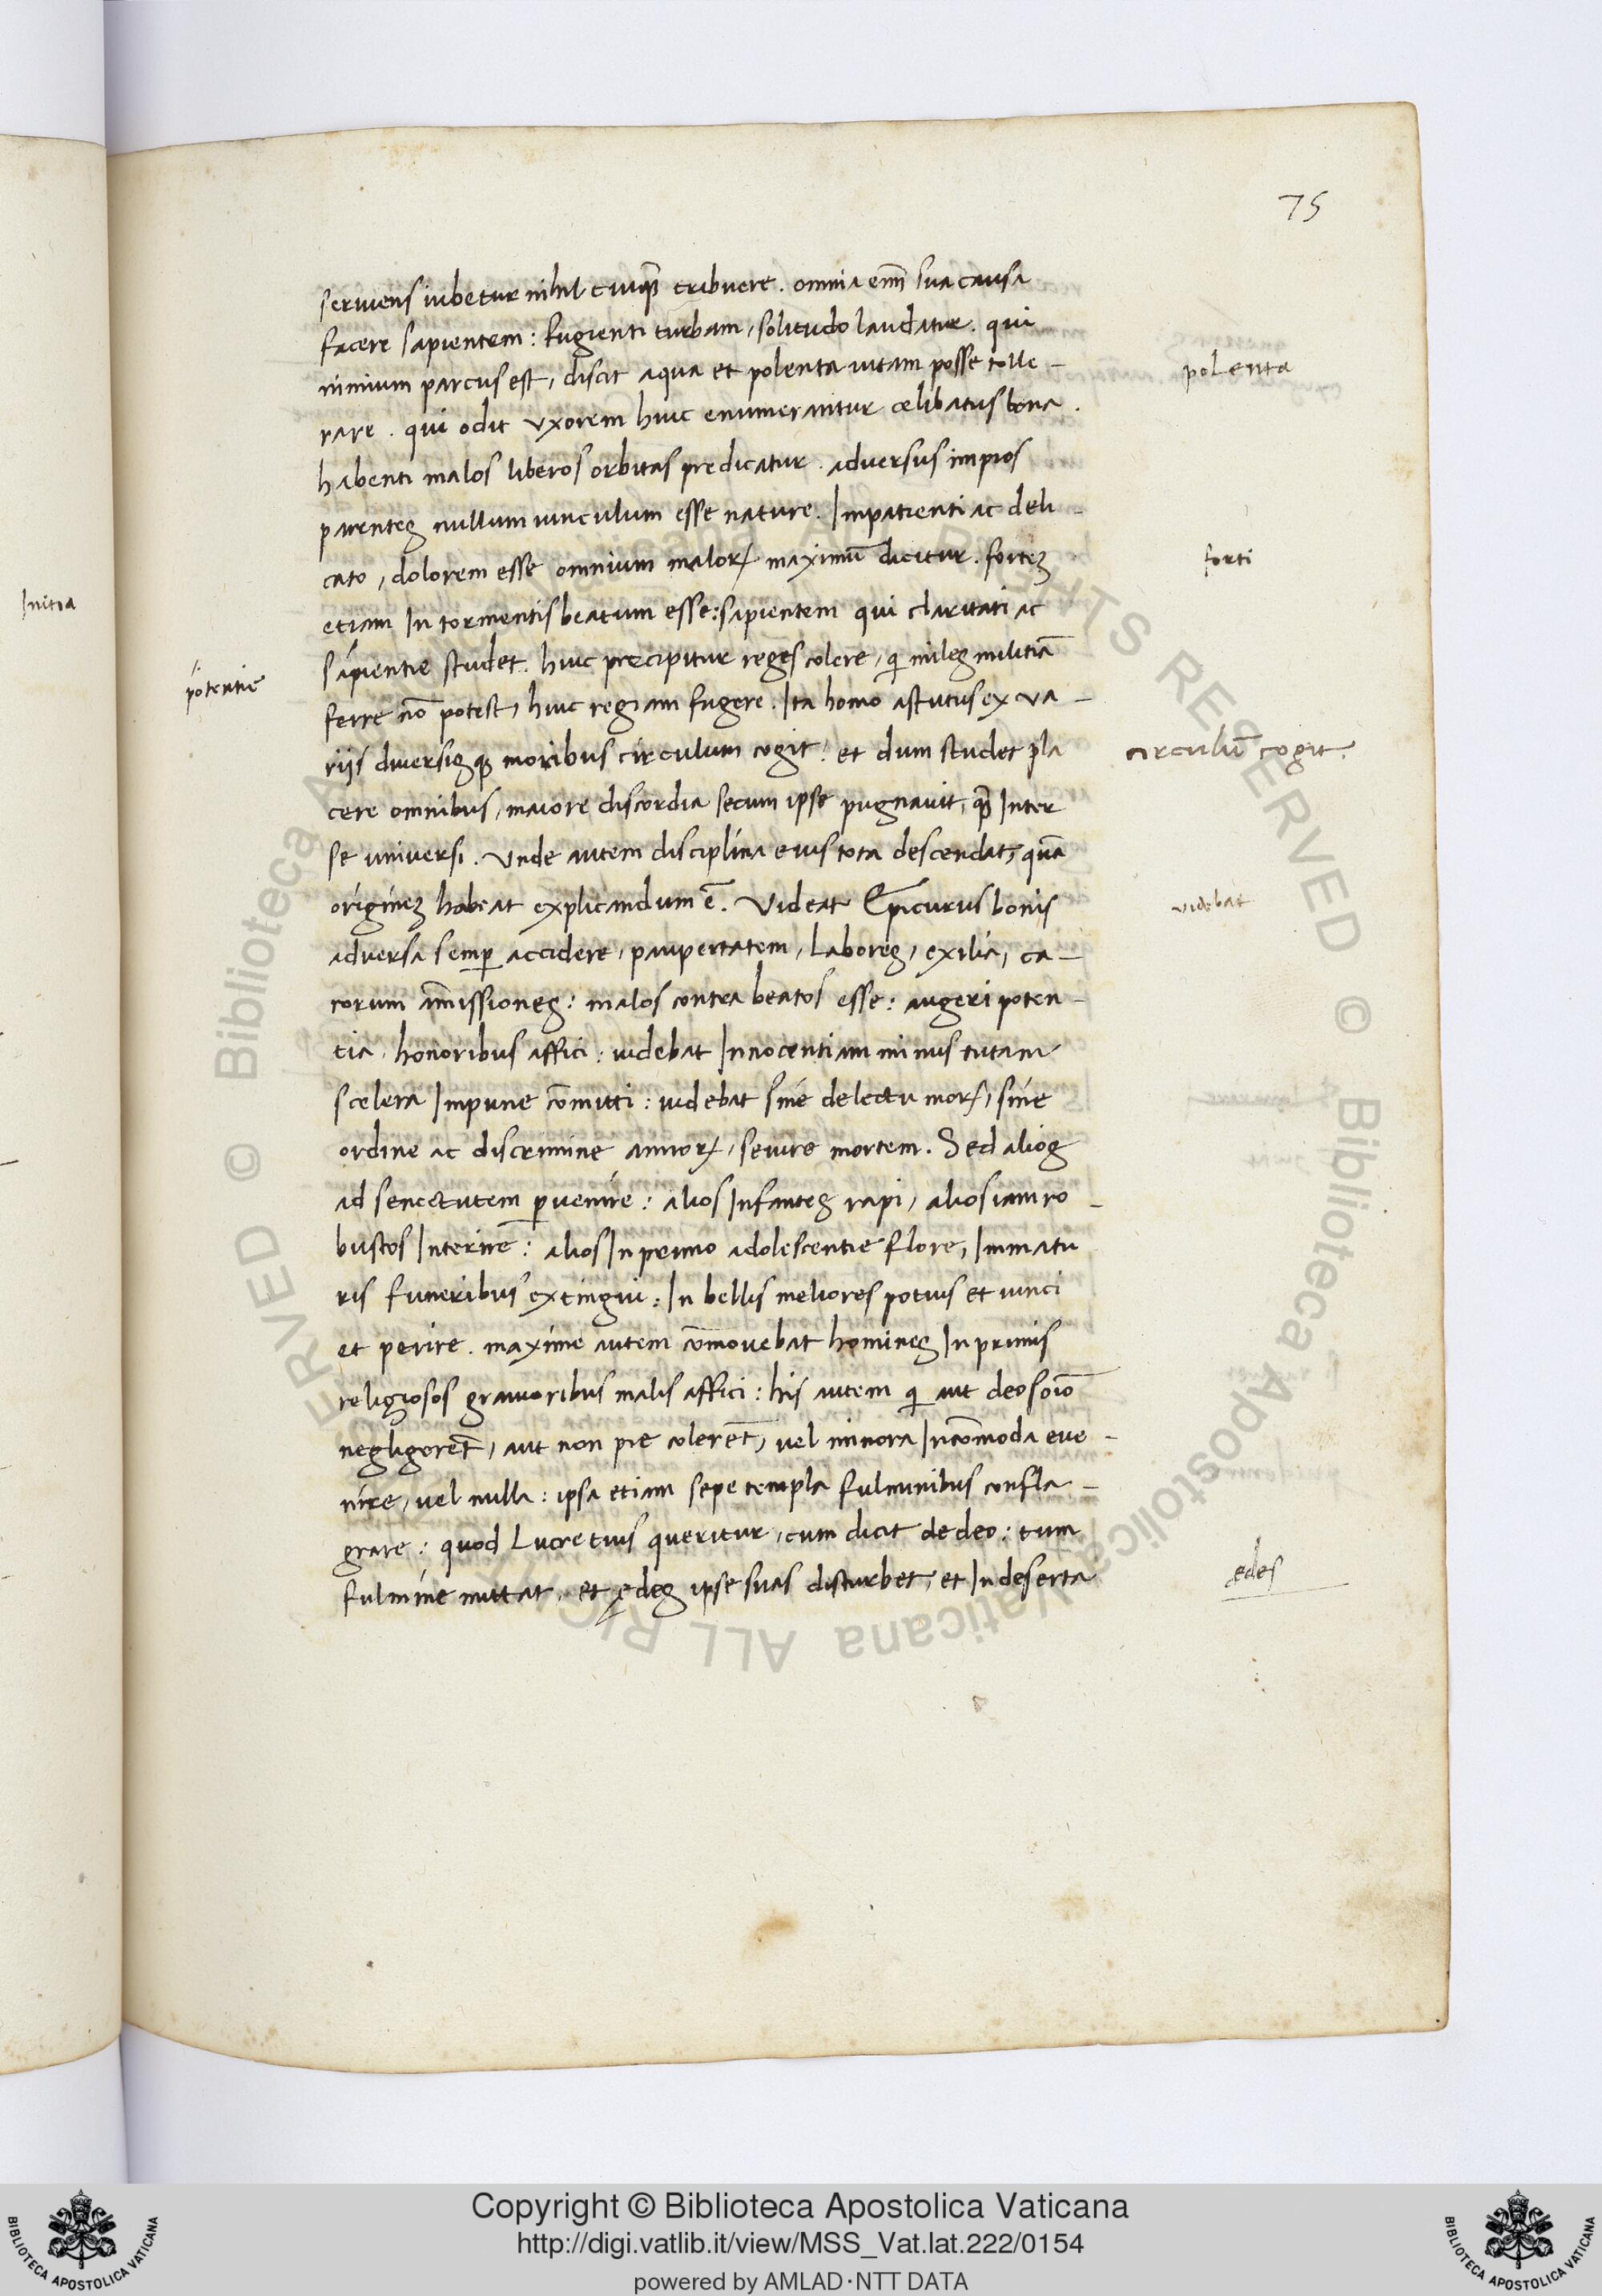 75
seruiens iubetur nihil cuiqȝ tribuere. omnia em̄ sua causa
facere sapientem: fugienti turbam, solitudo laudatur. qui
nimium parcus est, discit aqua et polenta uitam posse tolle-
polenta
rare. qui odit uxorem huic enumerantur celibatus bona.
habenti malos liberos orbitas predicatur. aduersus impios
parentes nullum uinculum esse nature. Impatienti ac deli-
cato, dolorem esse omnium maloꝝ maximū dicitur. forteȝ
forti
etiam In tormentis beatum esse: sapientem qui claritati ac
Initia
sapientie studet. huic precipitur reges colere, qi miles militiā
potentie
ferre nō potest, huic regiam fugere. Ita homo astutus ex ua-
riis diuersisqȝ moribus circulum cogit: et dum studet pla
circulū cogit.
cere omnibus, maiore discordia secum ipse pugnauit, qȝ Inter
se uniuersi. Vnde autem disciplina eius tota descendat, quā
origineȝ habeat explicandum ē. Videat Epicurus bonis
videbat
aduersa semp̄ accidere, paupertatem, labores, exilia, ca-
rorum āmissiones: malos contra beatos esse: augeri poten-
tia, honoribus affici: uidebat Innocentiam minus tutam
scelera Impune cōmitti: uidebat sine delectu moꝝ, sine
ordine ac discrimine annoꝝ, seuire mortem. Sed alios
ad senectutem ꝑuenire: alios Infantes rapi, alios iam ro-
bustos Interire: alios In primo adolescentie flore, Immatu
ris funeribus extingui: In bellis meliores potius et uinci
et perire. maxime autem cōmouebat homines In primis
religiosos grauioribus malis affici: his autem qi aut deos oīo
negligerēt, aut non pie colerēt, uel minora Incōmoda eue-
nire, uel nulla: ipsa etiam sepe templa fulminibus confla-
grare: quod Lucretius queritur, cum dicit de deo: tum
fulmine mittat, et ędes ipse suas disturbet, et In deserta
ædes
Copyright © Biblioteca Apostolica Vaticana
http://digi.vatlib.it/view/MSS_Vat.lat.222/0154
powered by AMLAD·NTT DATA
BIBLIOTECA APOSTOLICA VATICANA
BIBLIOTECA APOSTOLICA VATICANA
© Biblioteca Apostolica Vaticana ALL RIGHTS RESERVED © Biblioteca Apostolica Vaticana ALL RIGHTS RESERVED